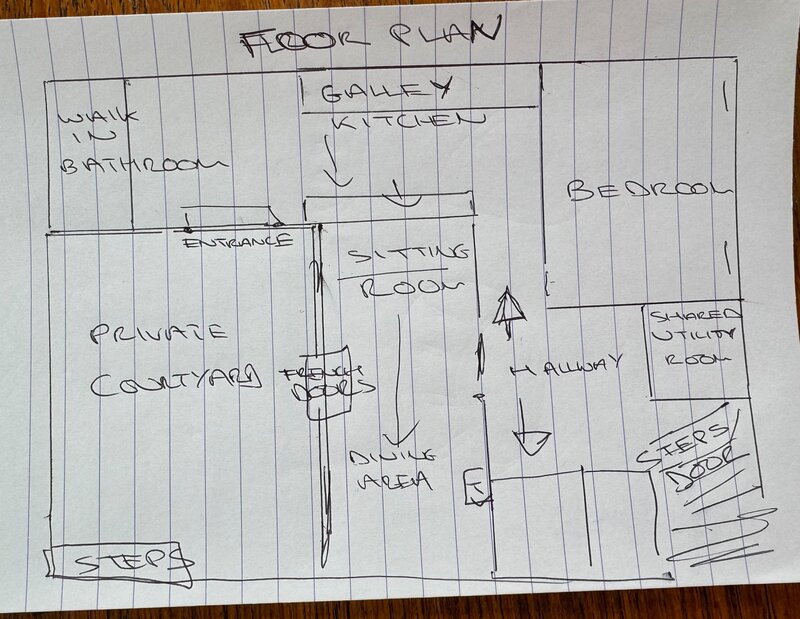 FLOOR PLAN
WALK
IN
BATHROOM
GALLEY
KITCHEN
BEDROOM
ENTRANCE
SITTING
ROOM
PRIVATE
COURTYARD
FRENCH
DOORS
HALLWAY
SHARED
UTILITY
ROOM
DINING
AREA
STEPS/
DOOR
STEPS